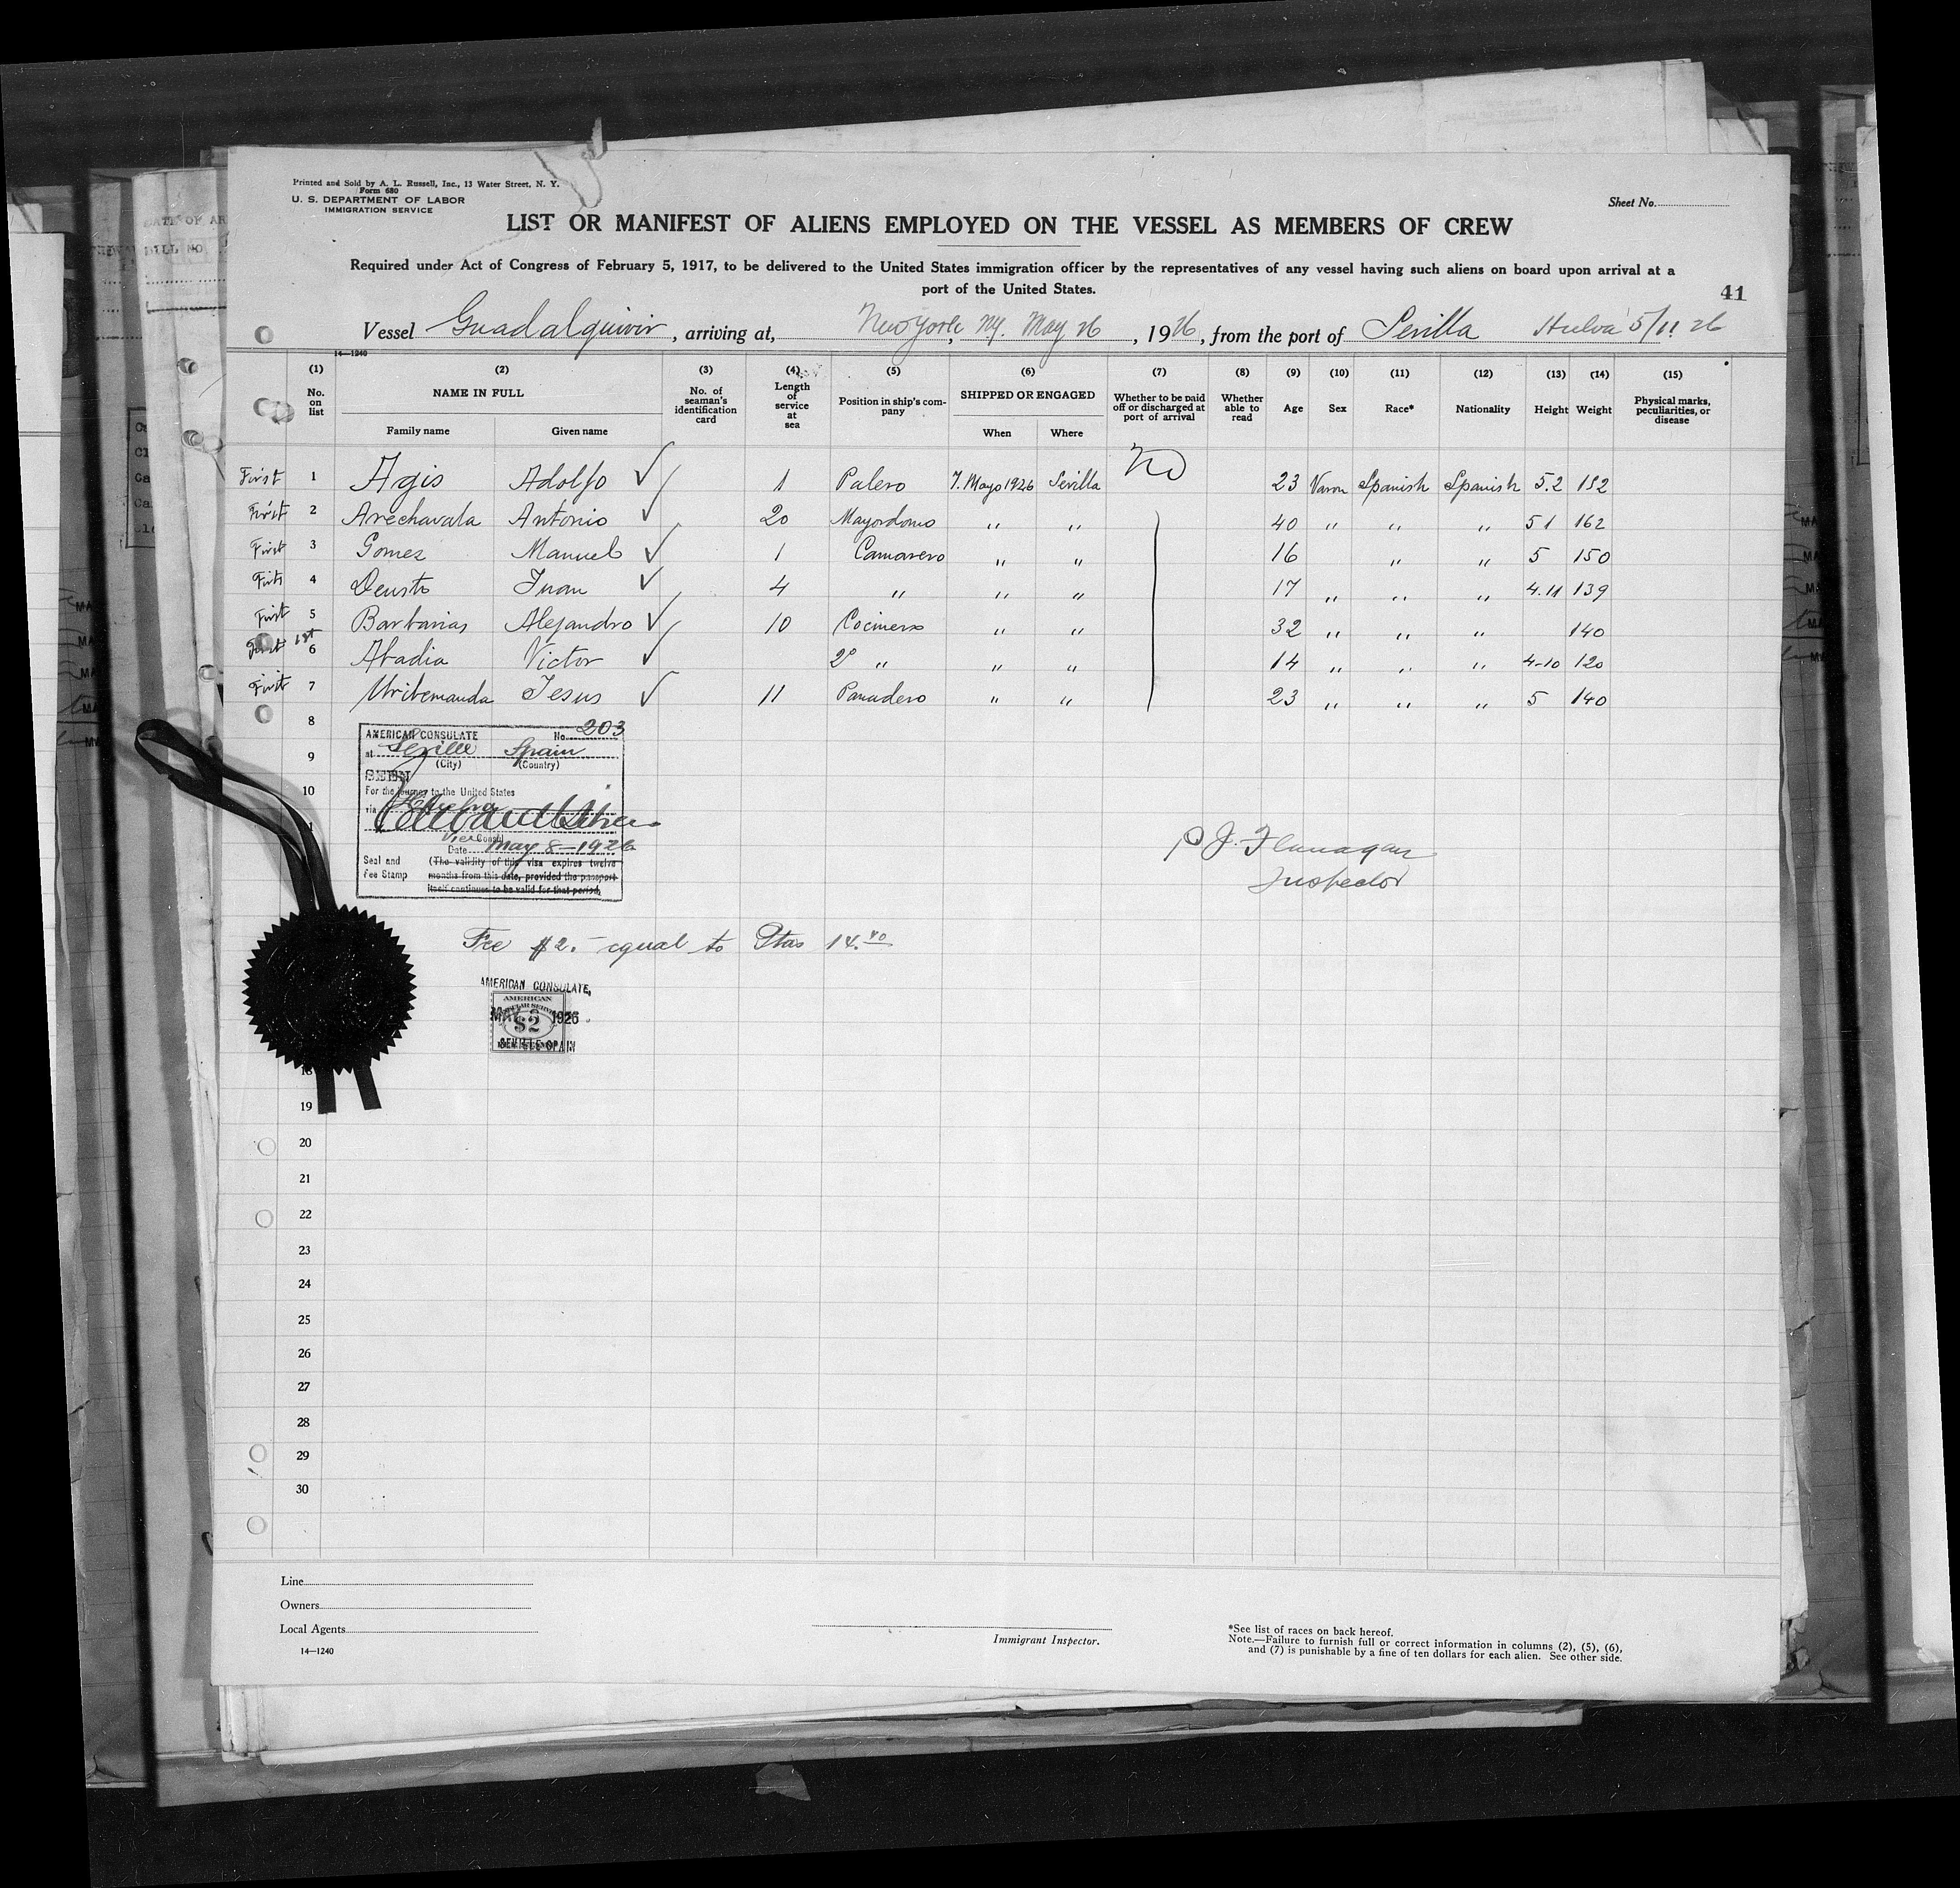 Printed and Sold by A. L. Russell, Inc., 13 Water Street, N. Y.
Form 680
U. S. DEPARTMENT OF LABOR
IMMIGRATION SERVICE
Sheet No.
LIST OR MANIFEST OF ALIENS EMPLOYED ON THE VESSEL AS MEMBERS OF CREW
Required under Act of Congress of February 5, 1917, to be delivered to the United States immigration officer by the representatives of any vessel having such aliens on board upon arrival at a
port of the United States.
41
Vessel Guadalquivir, arriving at, New York, NY. May 26, 1926, from the port of Sevilla Huelva 5/11 26
14—1240
(1) (2) (3) (4) (5) (6) (7) (8) (9) (10) (11) (12) (13) (14) (15)
No. on list NAME IN FULL Family name Given name No. of seaman's identification card Length of service at sea Position in ship's company SHIPPED OR ENGAGED When Where Whether to be paid off or discharged at port of arrival Whether able to read Age Sex Race* Nationality Height Weight Physical marks, peculiarities, or disease
First 1 Agis Adolfo ✓ 1 Palero 7. Mayo 1926 Sevilla No 23 Varon Spanish Spanish 5.2 152
First 2 Arechavala Antonio ✓ 20 Mayordomo " " 40 " " " 51 162
First 3 Gomez Manuel ✓ 1 Camarero " " 16 " " 5 150
First 4 Deusto Juan ✓ 4 " " " 17 " " " 4.11 139
First 5 Barbarias Alejandro ✓ 10 Cocinero " " 32 " " " 140
First 1st 6 Abadia Victor ✓ 2º " " " 14 " " " 4-10 120
First 7 Uribemanda Jesus ✓ 11 Panadero " " 23 " " " 5 140
8
9
10
AMERICAN CONSULATE No. 203
at Seville Spain
(City) (Country)
SEEN
For the journey to the United States
via Huelva
Vice Consul
Date May 8-1926
Seal and Fee Stamp
(The validity of this visa expires twelve
months from this date, provided the passport
itself continues to be valid for that period.
P J. Flanagan
Inspector
Fee $2.- equal to Ptas 14.40
AMERICAN CONSULATE,
AMERICAN
MAY 1926
$2
SEVILLE SPAIN
18
19
20
21
22
23
24
25
26
27
28
29
30
Line
Owners
Local Agents
14—1240
Immigrant Inspector.
*See list of races on back hereof.
Note.—Failure to furnish full or correct information in columns (2), (5), (6),
and (7) is punishable by a fine of ten dollars for each alien. See other side.